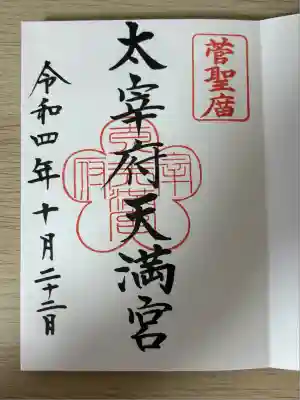 菅聖庿
太宰府天満宮
令和四年十月二十二日